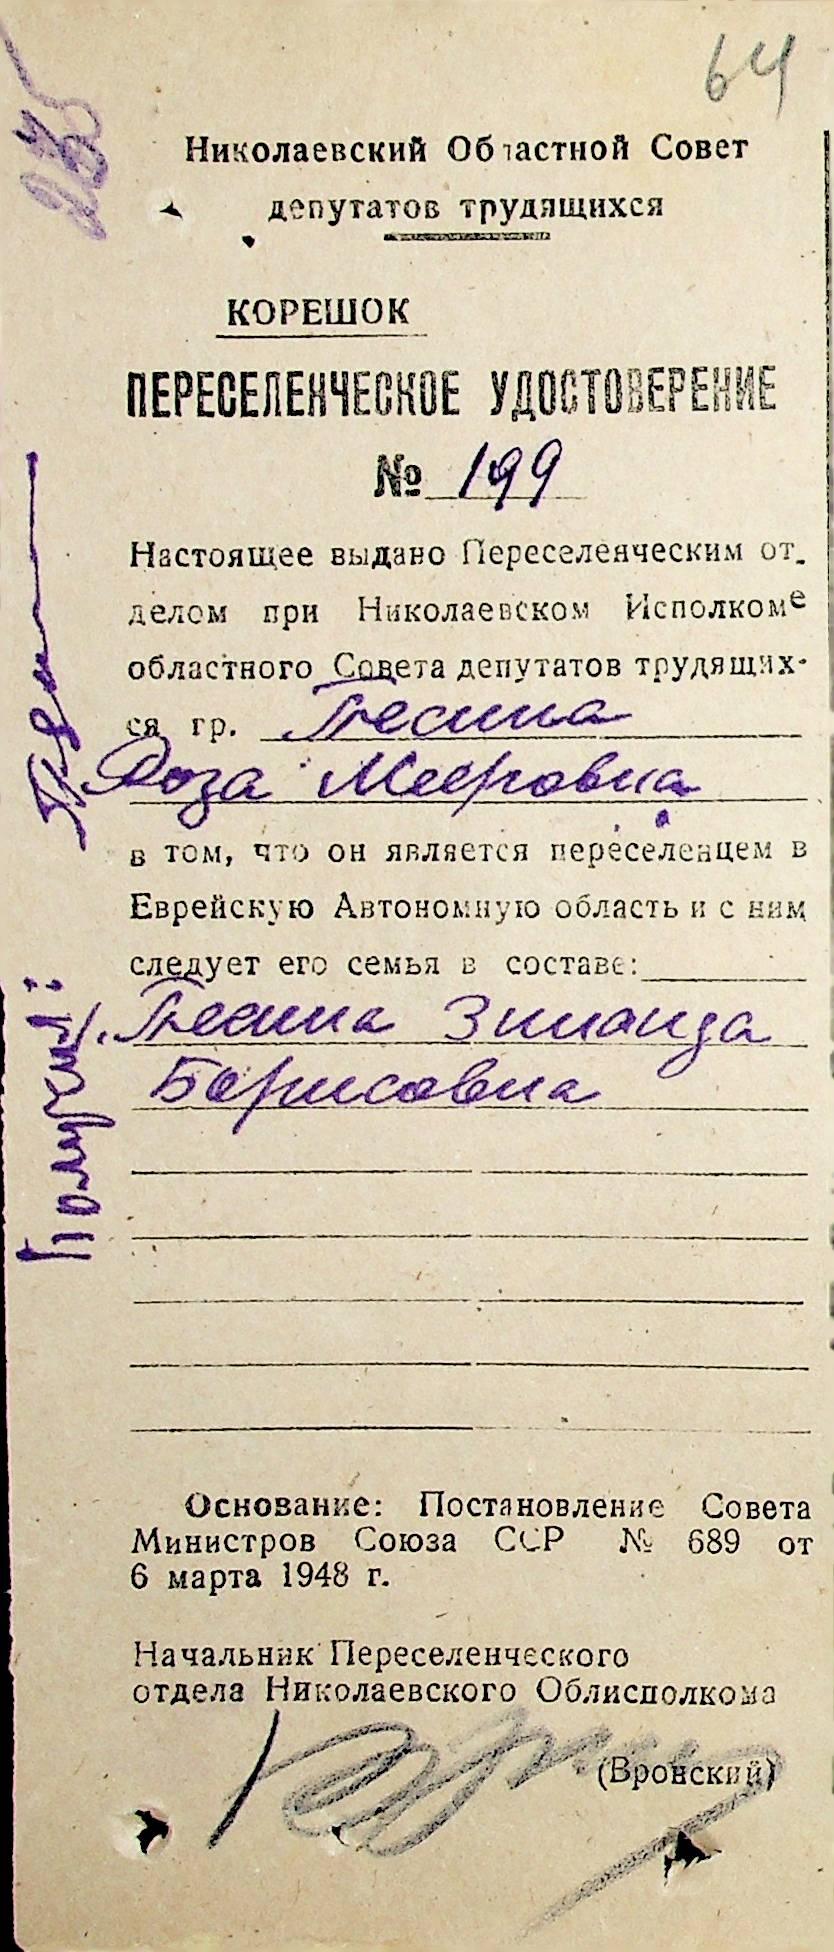 64
235
Николаевский Областной Совет
депутатов трудящихся
КОРЕШОК
ПЕРЕСЕЛЕНЧЕСКОЕ УДОСТОВЕРЕНИЕ
№ 199
Настоящее выдано Переселенческим от-
делом при Николаевском Исполкоме
областного Совета депутатов трудящих-
ся гр. Песина
Роза Мееровна
в том, что он является переселенцем в
Еврейскую Автономную область и с ним
следует его семья в составе:
1. Песина Зинаида
Борисовна
Основание: Постановление Совета
Министров Союза ССР № 689 от
6 марта 1948 г.
Начальник Переселенческого
отдела Николаевского Облисполкома
(Вронский)
Получил: